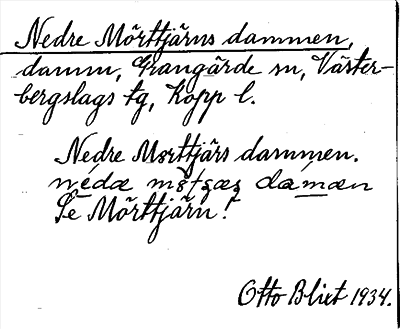 Nedre Mörttjärns dammen,
damm, Grangärde sn, Väster-
bergslags tg, Kopp l.
Nedre Mörttjärs dammen.
Se Mörttjärn!
Otto Blixt 1934.